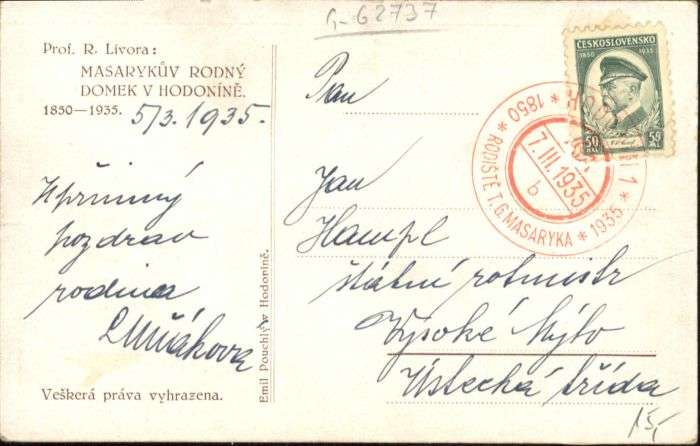 G-62737
Prof. R. Livora:
MASARYKŮV RODNÝ
DOMEK V HODONÍNĚ.
1850—1935.
5/3. 1935.
Upřímný
pozdrav
rodina
Veškerá práva vyhrazena.
Emil Pouchlý v Hodoníně.
ČESKOSLOVENSKO
1850 1935
50 50
HODONÍN 1 * 1935 * RODIŠTĚ T.G.MASARYKA * 1850 *
7.III.1935
b
Pan
Jan
Hampl
štátní rotmistr
Vysoké Mýto
Ústecká třída
15,